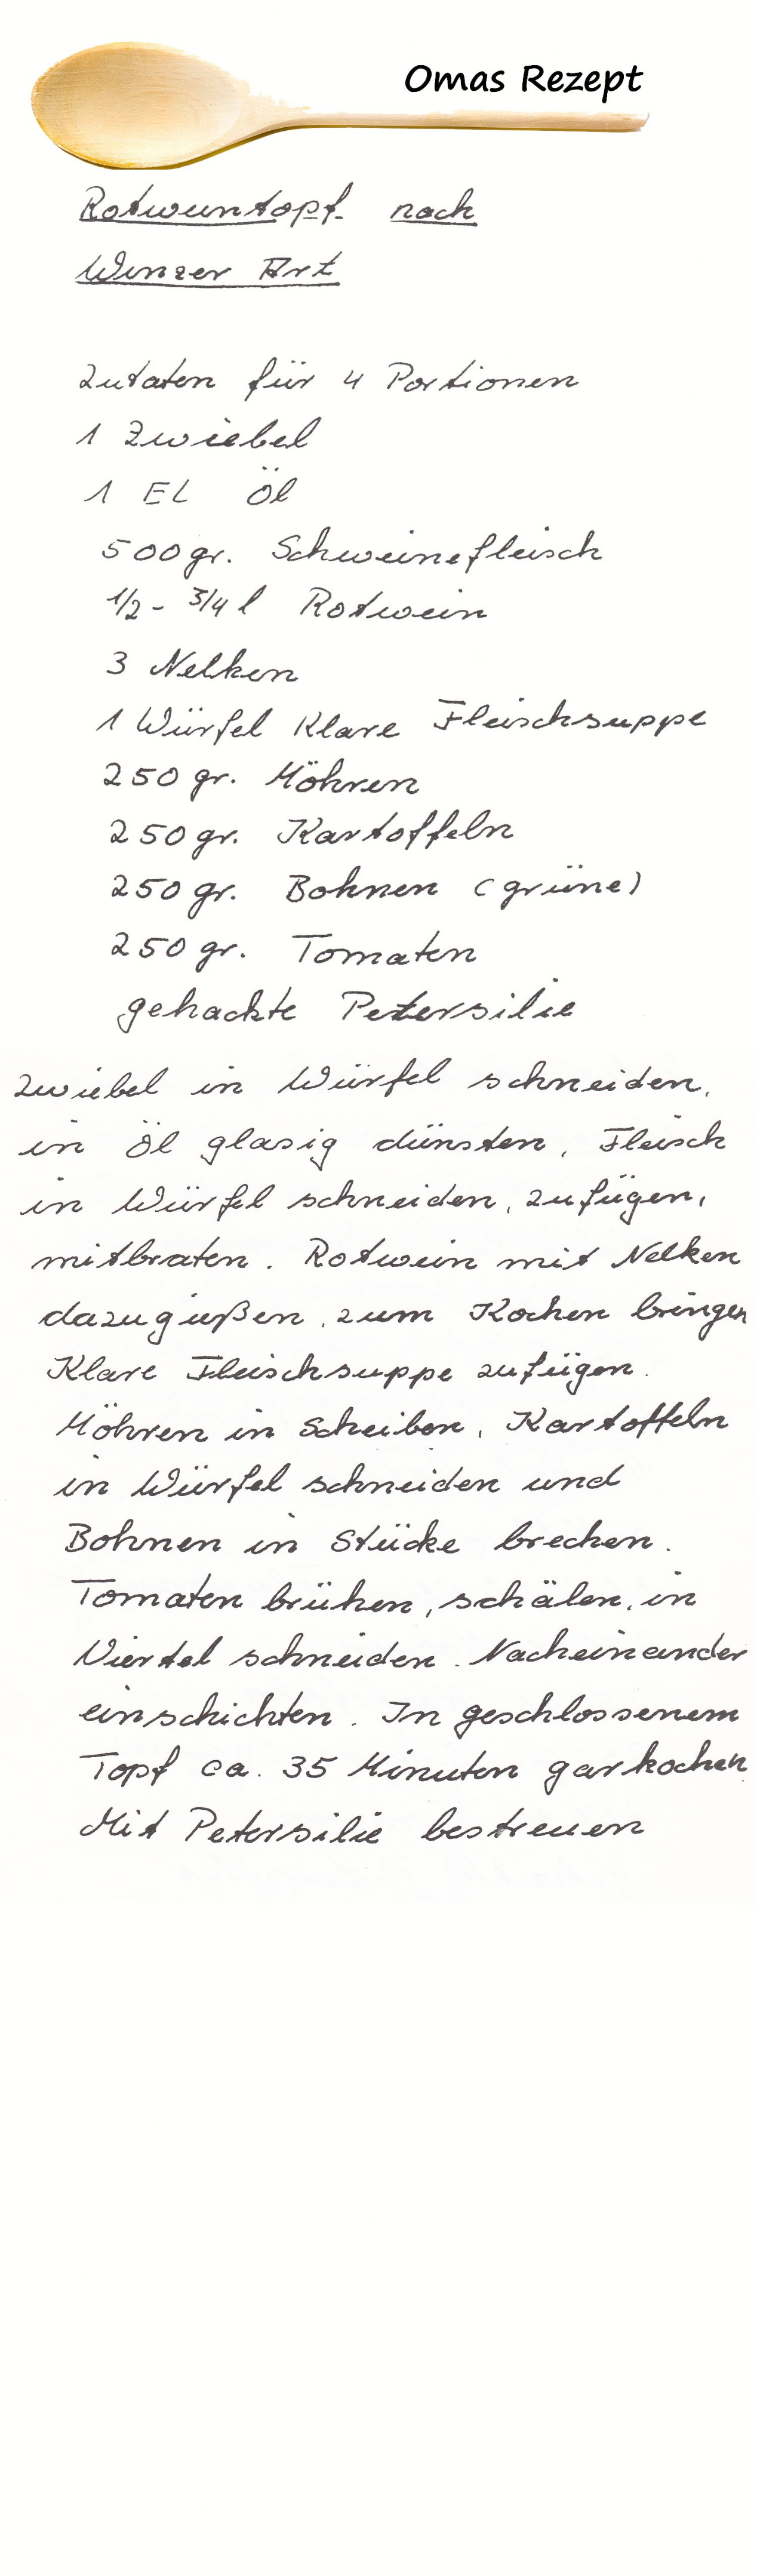 Omas Rezept
Rotweintopf nach
Winzer Art
Zutaten für 4 Portionen
1 Zwiebel
1 EL Öl
500 gr. Schweinefleisch
1/2 - 3/4 l Rotwein
3 Nelken
1 Würfel Klare Fleischsuppe
250 gr. Möhren
250 gr. Kartoffeln
250 gr. Bohnen (grüne)
250 gr. Tomaten
gehackte Petersilie
Zwiebel in Würfel schneiden,
in Öl glasig dünsten, Fleisch
in Würfel schneiden, zufügen,
mitbraten. Rotwein mit Nelken
dazugießen, zum Kochen bringen
Klare Fleischsuppe zufügen.
Möhren in Scheiben, Kartoffeln
in Würfel schneiden und
Bohnen in Stücke brechen.
Tomaten brühen, schälen, in
Viertel schneiden. Nacheinander
einschichten. In geschlossenem
Topf ca. 35 Minuten garkochen
Mit Petersilie bestreuen